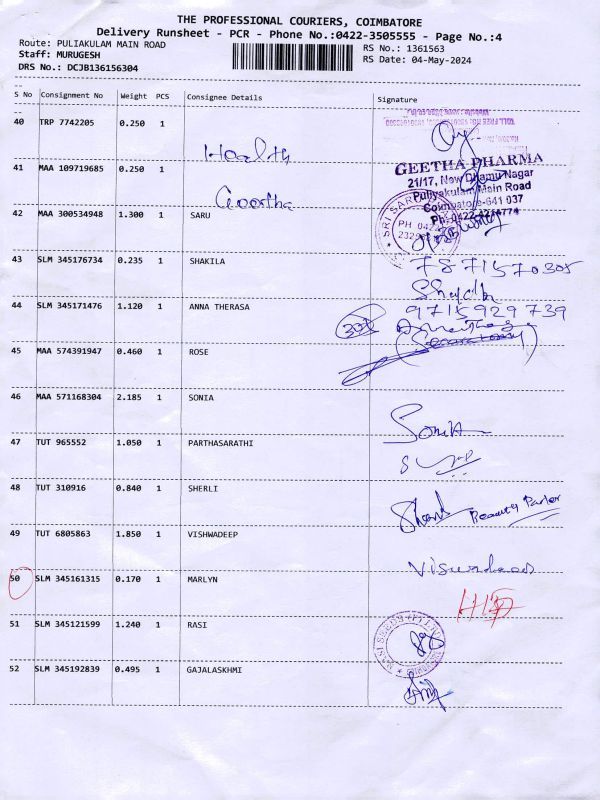 THE PROFESSIONAL COURIERS, COIMBATORE
Delivery Runsheet - PCR - Phone No.:0422-3505555 - Page No.:4
Route: PULIAKULAM MAIN ROAD RS No.: 1361563
Staff: MURUGESH RS Date: 04-May-2024
DRS No.: DCJB136156304
S No Consignment No Weight PCS Consignee Details Signature
40 TRP 7742205 0.250 1
Health
41 MAA 109719685 0.250 1 GEETHA PHARMA
21/17, New Dhamu Nagar
Puliyakulam Main Road
Coimbatore-641 037
Ph: 0422-4214774
Geetha
42 MAA 300534948 1.300 1 SARU
43 SLM 345176734 0.235 1 SHAKILA 7871570305
44 SLM 345171476 1.120 1 ANNA THERASA 9715929739
(Secretary)
45 MAA 574391947 0.460 1 ROSE
46 MAA 571168304 2.185 1 SONIA Sonia
47 TUT 965552 1.050 1 PARTHASARATHI
48 TUT 310916 0.840 1 SHERLI Beauty Parlor
49 TUT 6805863 1.850 1 VISHWADEEP
50 SLM 345161315 0.170 1 MARLYN
51 SLM 345121599 1.240 1 RASI
52 SLM 345192839 0.495 1 GAJALASKHMI